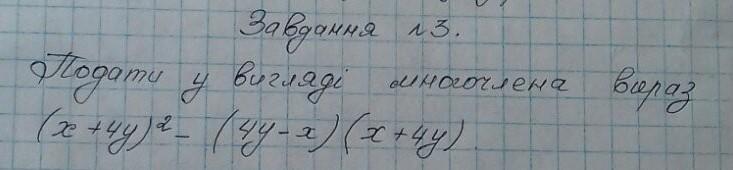 Завдання №3.
Подати у вигляді многочлена вираз
(x+4y)² - (4y-x)(x+4y)